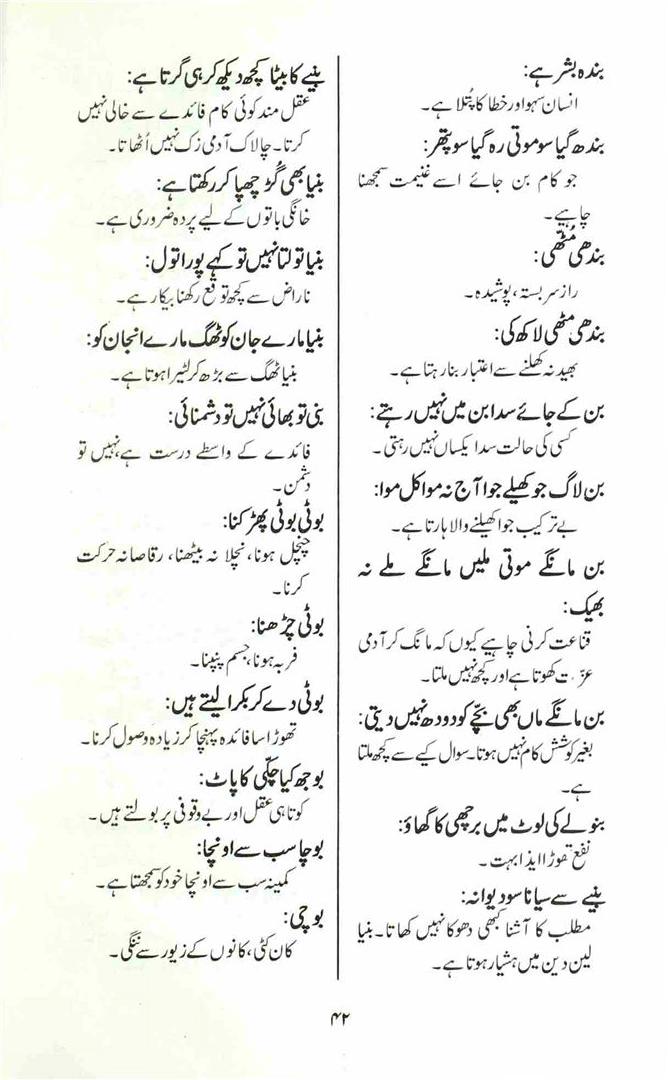 بندہ بشر ہے:
انسان سہو اور خطا کا پُتلا ہے۔
بندھ گیا سو موتی رہ گیا سو پتھر:
جو کام بن جائے اسے غنیمت سمجھنا
چاہیے۔
بندھی مُٹھی:
راز سر بستہ، پوشیدہ۔
بندھی مٹھی لاکھ کی:
بھید نہ کھلنے سے اعتبار بنا رہتا ہے۔
بن کے جائے سدا بن میں نہیں رہتے:
کسی کی حالت سدا یکساں نہیں رہتی۔
بن لاگ جو کھیلے جوا آج نہ موا کل موا:
بے ترکیب جوا کھیلنے والا ہارتا ہے۔
بن مانگے موتی ملیں مانگے ملے نہ
بھیک:
قناعت کرنی چاہیے کیوں کہ مانگ کر آدمی
عزّت کھوتا ہے اور کچھ نہیں ملتا۔
بن مانگے ماں بھی بچّے کو دودھ نہیں دیتی:
بغیر کوشش کام نہیں ہوتا۔ سوال کیے سے کچھ ملتا
ہے۔
بنولے کی لوٹ میں برچھی کا گھاؤ:
نفع تھوڑا ایذا بہت۔
بنیے سے سیانا سو دیوانہ:
مطلب کا آشنا کبھی دھوکا نہیں کھاتا۔ بنیا
لین دین میں ہشیار ہوتا ہے۔
بنیے کا بیٹا کچھ دیکھ کر ہی گرتا ہے:
عقل مند کوئی کام فائدے سے خالی نہیں
کرتا۔ چالاک آدمی زک نہیں اُٹھاتا۔
بنیا بھی گُڑ چھپا کر رکھتا ہے:
خانگی باتوں کے لیے پردہ ضروری ہے۔
بنیا تولتا نہیں تو کہے پورا تول:
ناراض سے کچھ توقع رکھنا بیکار ہے۔
بنیا مارے جان کو ٹھگ مارے انجان کو:
بنیا ٹھگ سے بڑھ کر لٹیرا ہوتا ہے۔
بنی تو بھائی نہیں تو دشمنائی:
فائدے کے واسطے درست ہے، نہیں تو
دشمن۔
بوٹی بوٹی پھڑکنا:
چنچل ہونا، نچلا نہ بیٹھنا، رقاصانہ حرکت
کرنا۔
بوٹی چڑھنا:
فربہ ہونا، جسم پنپنا۔
بوٹی دے کر بکرا لیتے ہیں:
تھوڑا سا فائدہ پہنچا کر زیادہ وصول کرنا۔
بوجھ کیا چکّی کا پاٹ:
کوتاہی عقل اور بے وقوفی پر بولتے ہیں۔
بوچا سب سے اونچا:
کمینہ سب سے اونچا خود کو سمجھتا ہے۔
بوچی:
کان کٹی، کانوں کے زیور سے ننگی۔
۴۲